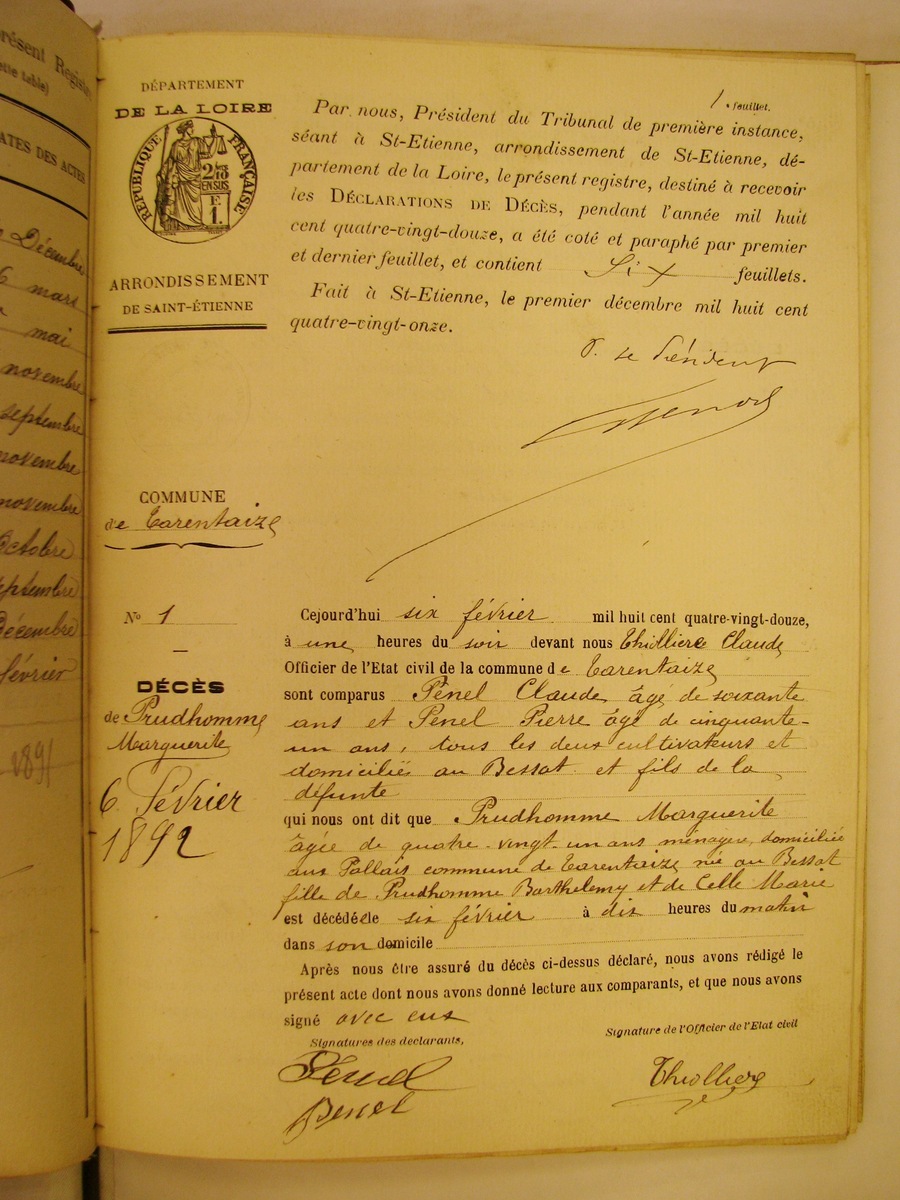 présent Regist
ette table)
ATES DES ACTES
Décembre
6 mars
mai
novembre
septembre
novembre
novembre
Octobre
eptembre
Décembre
février
1891
1 feuillet.
DÉPARTEMENT
DE LA LOIRE
RÉPUBLIQUE FRANÇAISE
2/10
EN SUS
E.
1.
ARRONDISSEMENT
DE SAINT-ÉTIENNE
Par nous, Président du Tribunal de première instance,
séant à St-Etienne, arrondissement de St-Etienne, dé-
partement de la Loire, le présent registre, destiné à recevoir
les DÉCLARATIONS DE DÉCÈS, pendant l'année mil huit
cent quatre-vingt-douze, a été coté et paraphé par premier
et dernier feuillet, et contient Six feuillets.
Fait à St-Etienne, le premier décembre mil huit cent
quatre-vingt-onze.
P. le Président
COMMUNE
de Tarentaize
No 1
DÉCÈS
de Prudhomme
Marguerite
6 Février
1892
Cejourd'hui six février mil huit cent quatre-vingt-douze,
à une heures du soir devant nous Thiolliere Claude
Officier de l'Etat civil de la commune de Tarentaize
sont comparus Penel Claude, âgé de soixante
ans et Penel Pierre âgé de cinquante-
un ans, tous les deux cultivateurs et
domiciliés au Bessat et fils de la
défunte
qui nous ont dit que Prudhomme Marguerite
âgée de quatre-vingt-un ans ménagère, domiciliée
aux Pallais commune de Tarentaize née au Bessat
fille de Prudhomme Barthelemy et de Celle Marie
est décédéele six février à dix heures du matin
dans son domicile
Après nous être assuré du décès ci-dessus déclaré, nous avons rédigé le
présent acte dont nous avons donné lecture aux comparants, et que nous avons
signé avec eux
Signatures des declarants,
Signature de l'Officier de l'Etat civil
Penel
Penel
Thiolliere